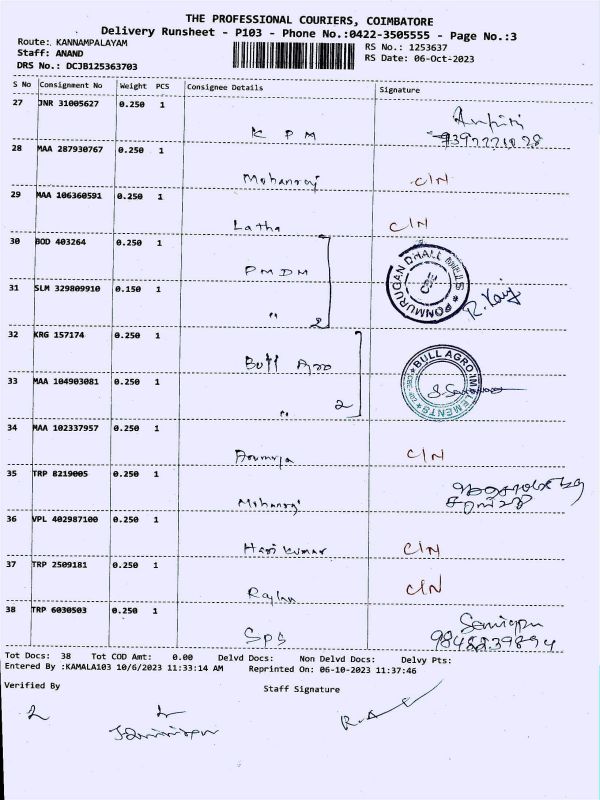 THE PROFESSIONAL COURIERS, COIMBATORE
Delivery Runsheet - P103 - Phone No.:0422-3505555 - Page No.:3
Route: KANNAMPALAYAM
RS No.: 1253637
Staff: ANAND
RS Date: 06-Oct-2023
DRS No.: DCJB125363703
S No Consignment No Weight PCS Consignee Details Signature
27 JNR 31005627 0.250 1
K P M
28 MAA 287930767 0.250 1
Mohanraj C/N
29 MAA 106360591 0.250 1
Latha C/N
30 BOD 403264 0.250 1
PMDM
PONMURUGAN DHALL MILLS
31 SLM 329809910 0.150 1
" 2
R. Kavy
32 KRG 157174 0.250 1
Bull Agro
BULL AGRO IMPLEMENTS
33 MAA 104903081 0.250 1
" 2
34 MAA 102337957 0.250 1
C/N
35 TRP 8219005 0.250 1
Mohanraj
36 VPL 402987100 0.250 1
Hari Kumar C/N
37 TRP 2509181 0.250 1
Rajan C/N
38 TRP 6030503 0.250 1
SPS
Tot Docs: 38 Tot COD Amt: 0.00 Delvd Docs: Non Delvd Docs: Delvy Pts:
Entered By :KAMALA103 10/6/2023 11:33:14 AM Reprinted On: 06-10-2023 11:37:46
Verified By
Staff Signature